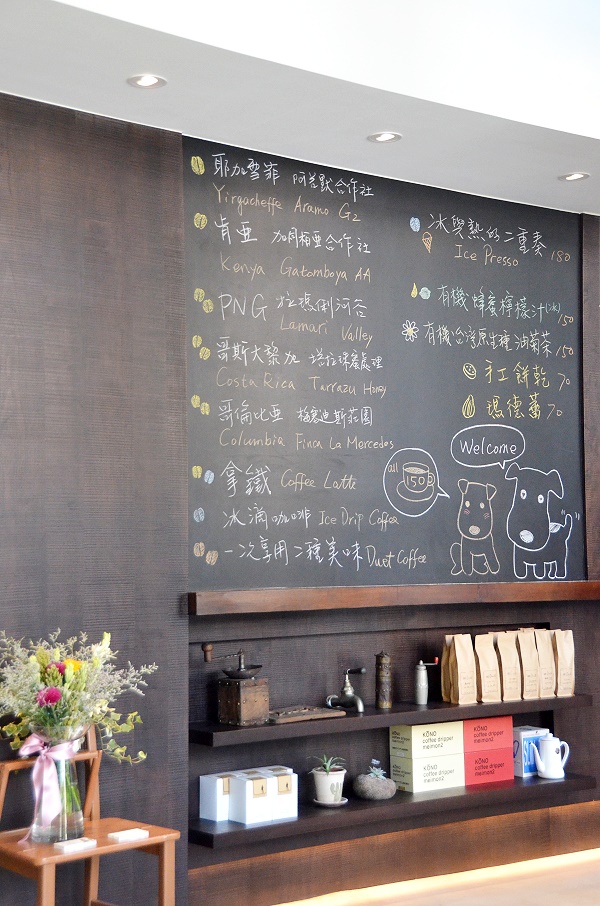 耶加雪菲 阿若默合作社
Yirgacheffe Aramo G2
肯亞 加同柏亞合作社
Kenya Gatomboya AA
PNG 拉瑪俐河谷
Lamari Valley
哥斯大黎加 塔拉珠蜜處理
Costa Rica Tarrazu Honey
哥倫比亞 梅賽迪斯莊園
Columbia Finca La Mercedes
拿鐵 Coffee Latte
冰滴咖啡 Ice Drip Coffee
一次享用二種美味 Duet Coffee
冰與熱的二重奏
Ice Presso 180
有機蜂蜜檸檬汁(冰) 150
有機台灣原生種油菊茶 150
手工餅乾 70
瑪德蕾 70
Welcome
all 150
KŌNO
coffee dripper
meimon2
KŌNO
coffee dripper
meimon2
KŌNO
coffee dripper
meimon2
KŌNO
coffee dripper
meimon2